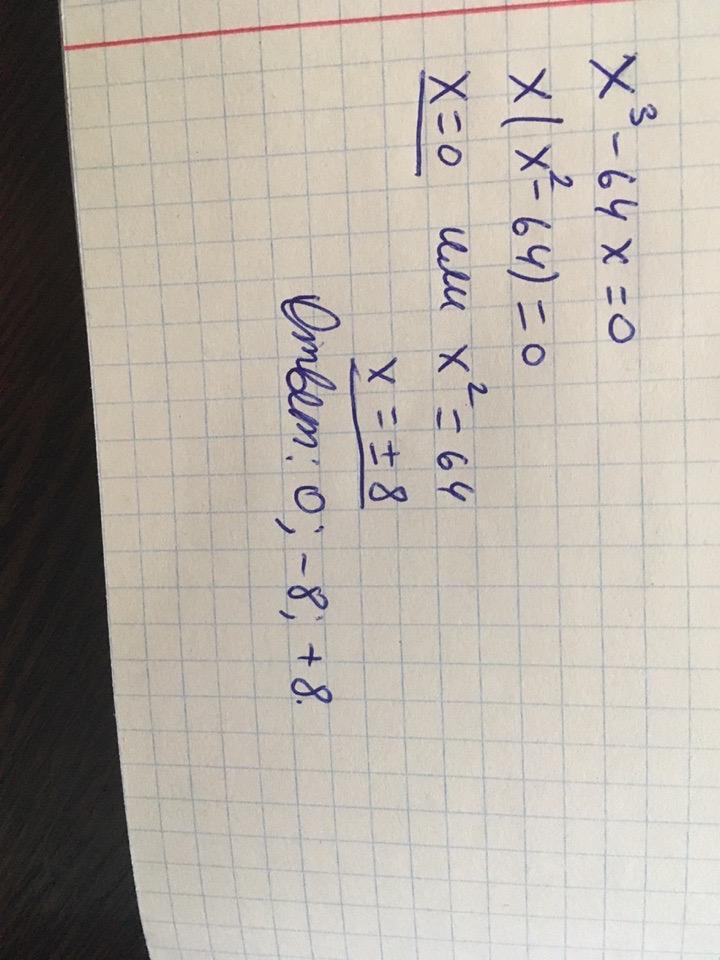 x³ - 64x = 0
x(x² - 64) = 0
x = 0 или x² = 64
x = ± 8
Ответ: 0; -8; +8.